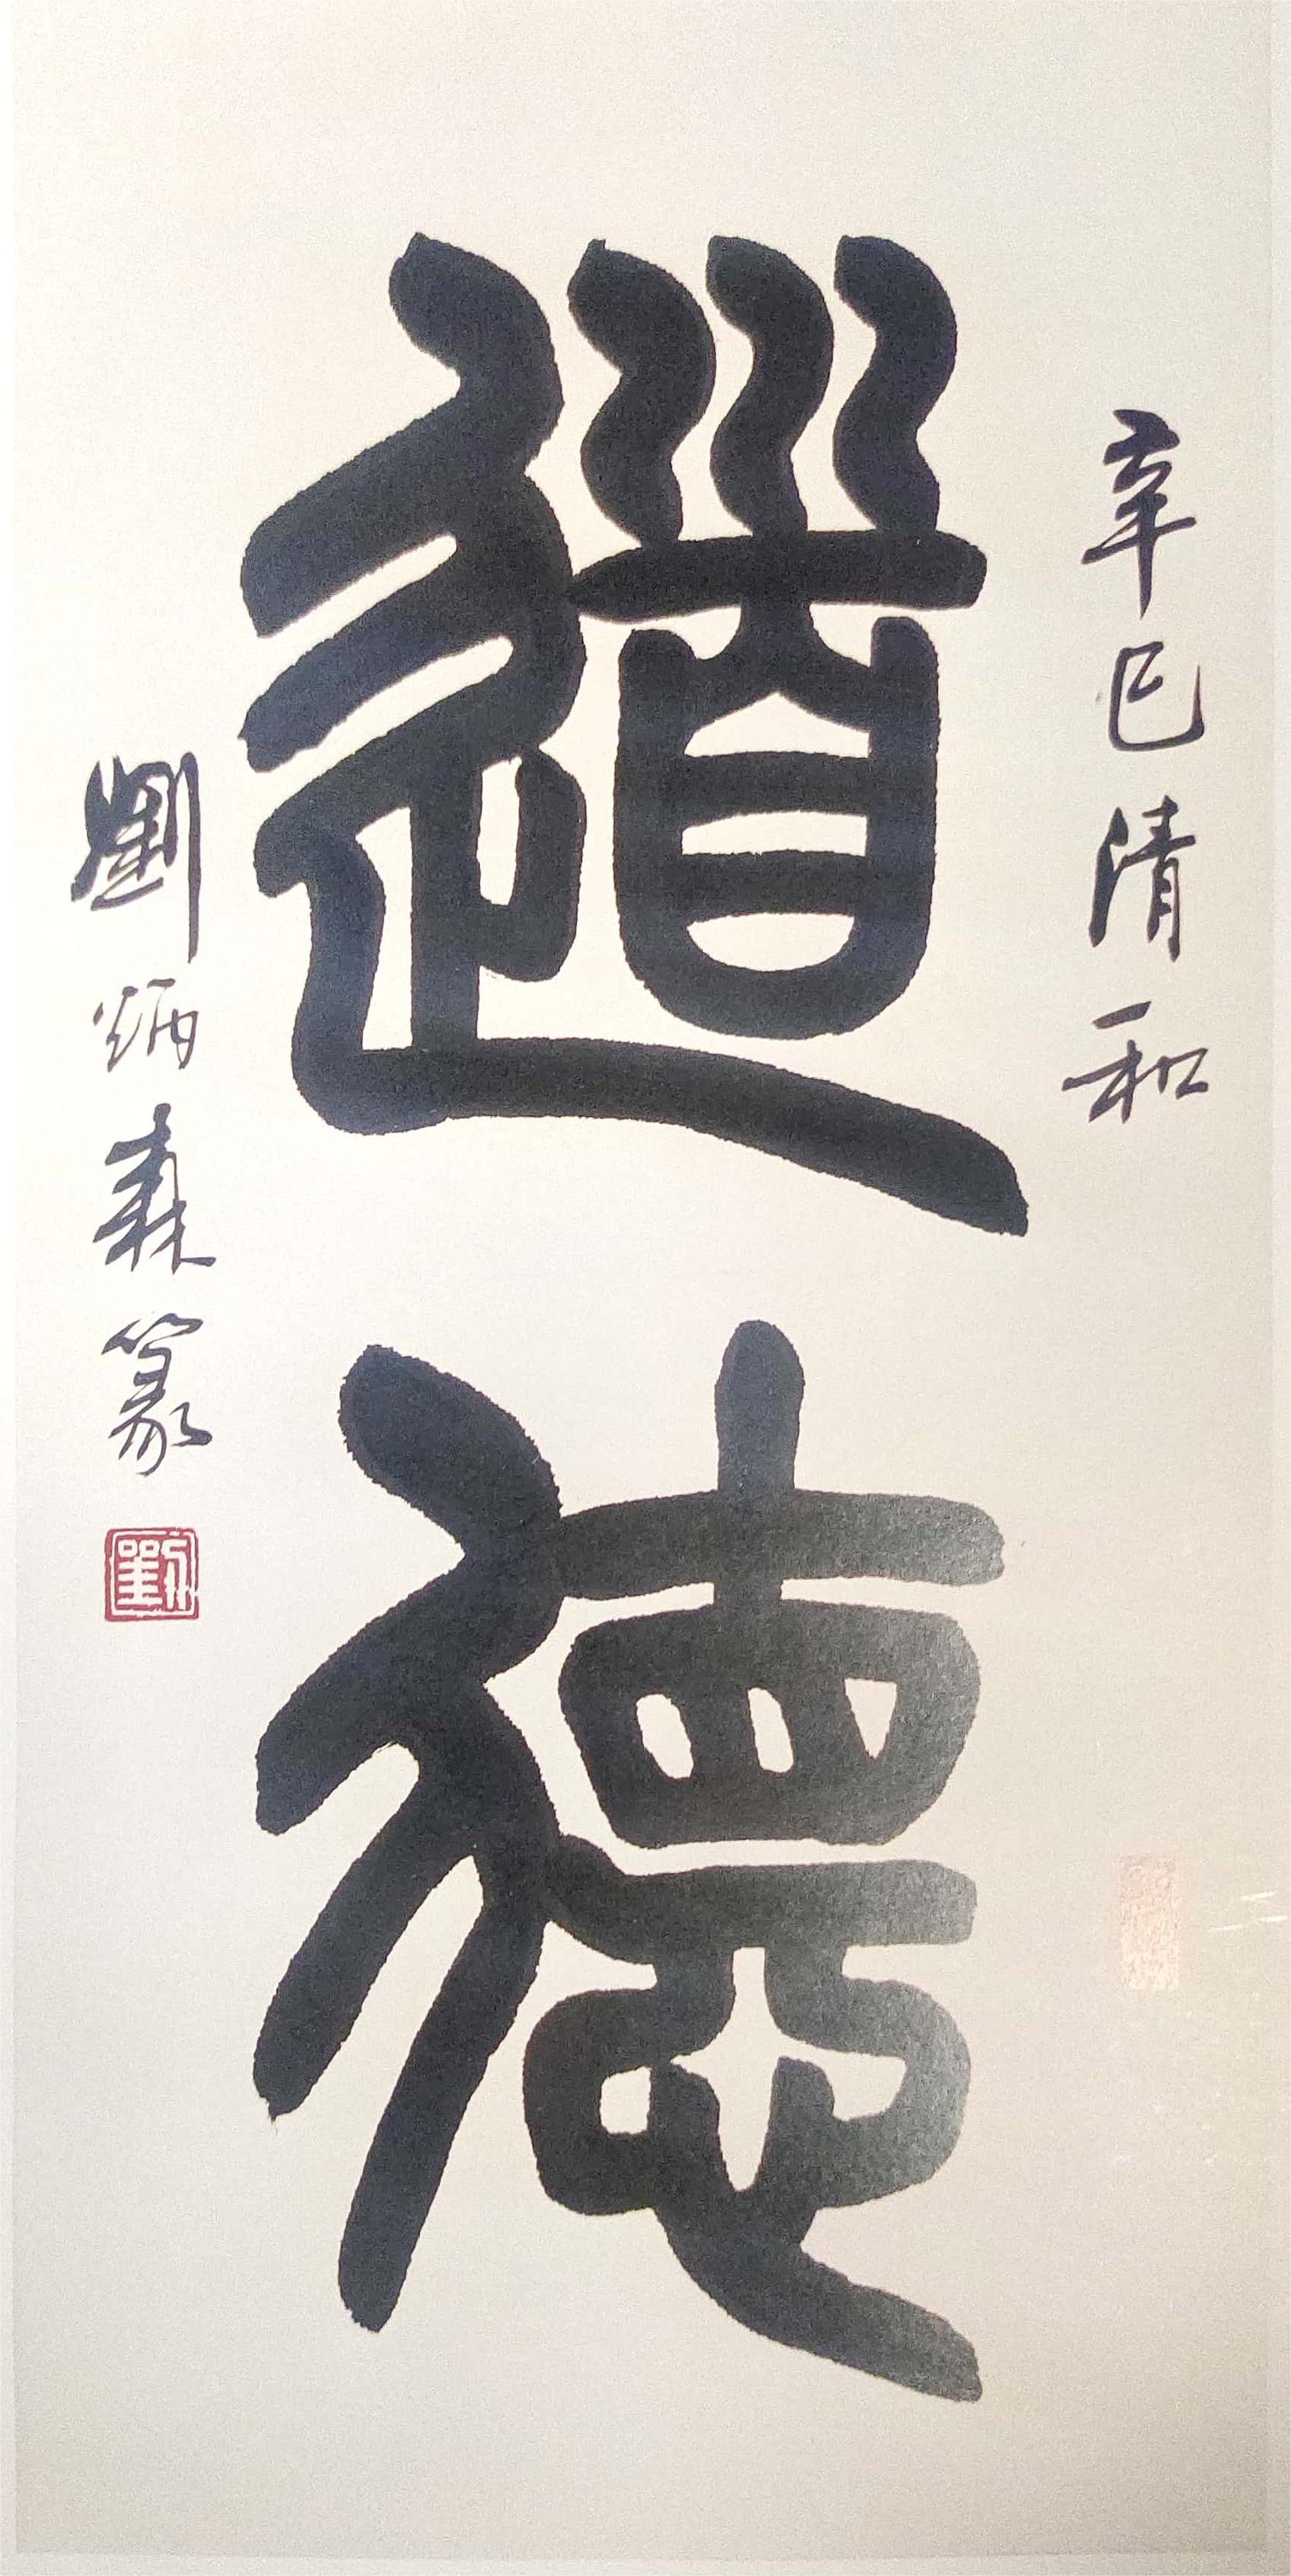 辛巳清和
道德
劉炳森篆